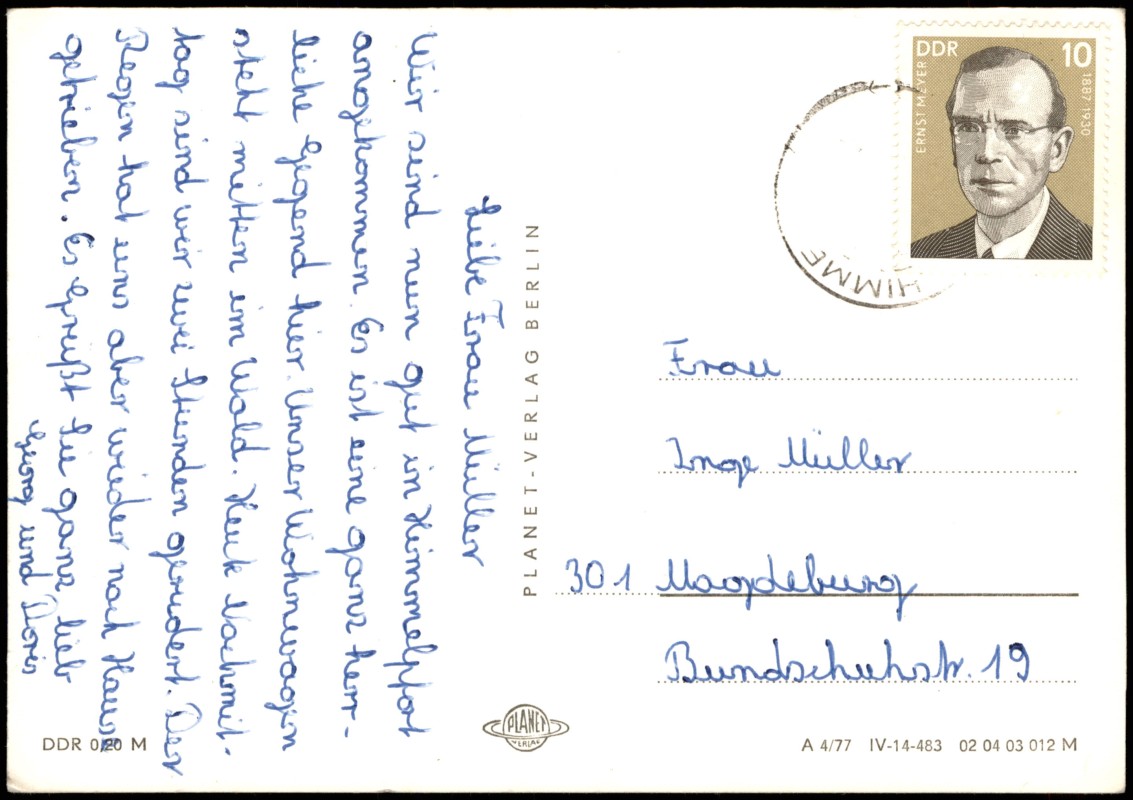 Liebe Frau Müller
Wir sind nun gut in Himmelpfort
angekommen. Es ist eine ganz herr-
liche Gegend hier. Unser Wohnwagen
steht mitten im Wald. Heute Nachmit-
tag sind wir zwei Stunden gerudert. Der
Regen hat uns aber wieder nach Hause
getrieben. Es grüßt Sie ganz lieb
Georg und Doris
PLANET-VERLAG BERLIN
DDR 10
ERNST MEYER 1887-1930
HIMME
Frau
Inge Müller
301 Magdeburg
Bundschuhstr. 19
PLANET
VERLAG
DDR 0,20 M
A 4/77 IV-14-483 02 04 03 012 M